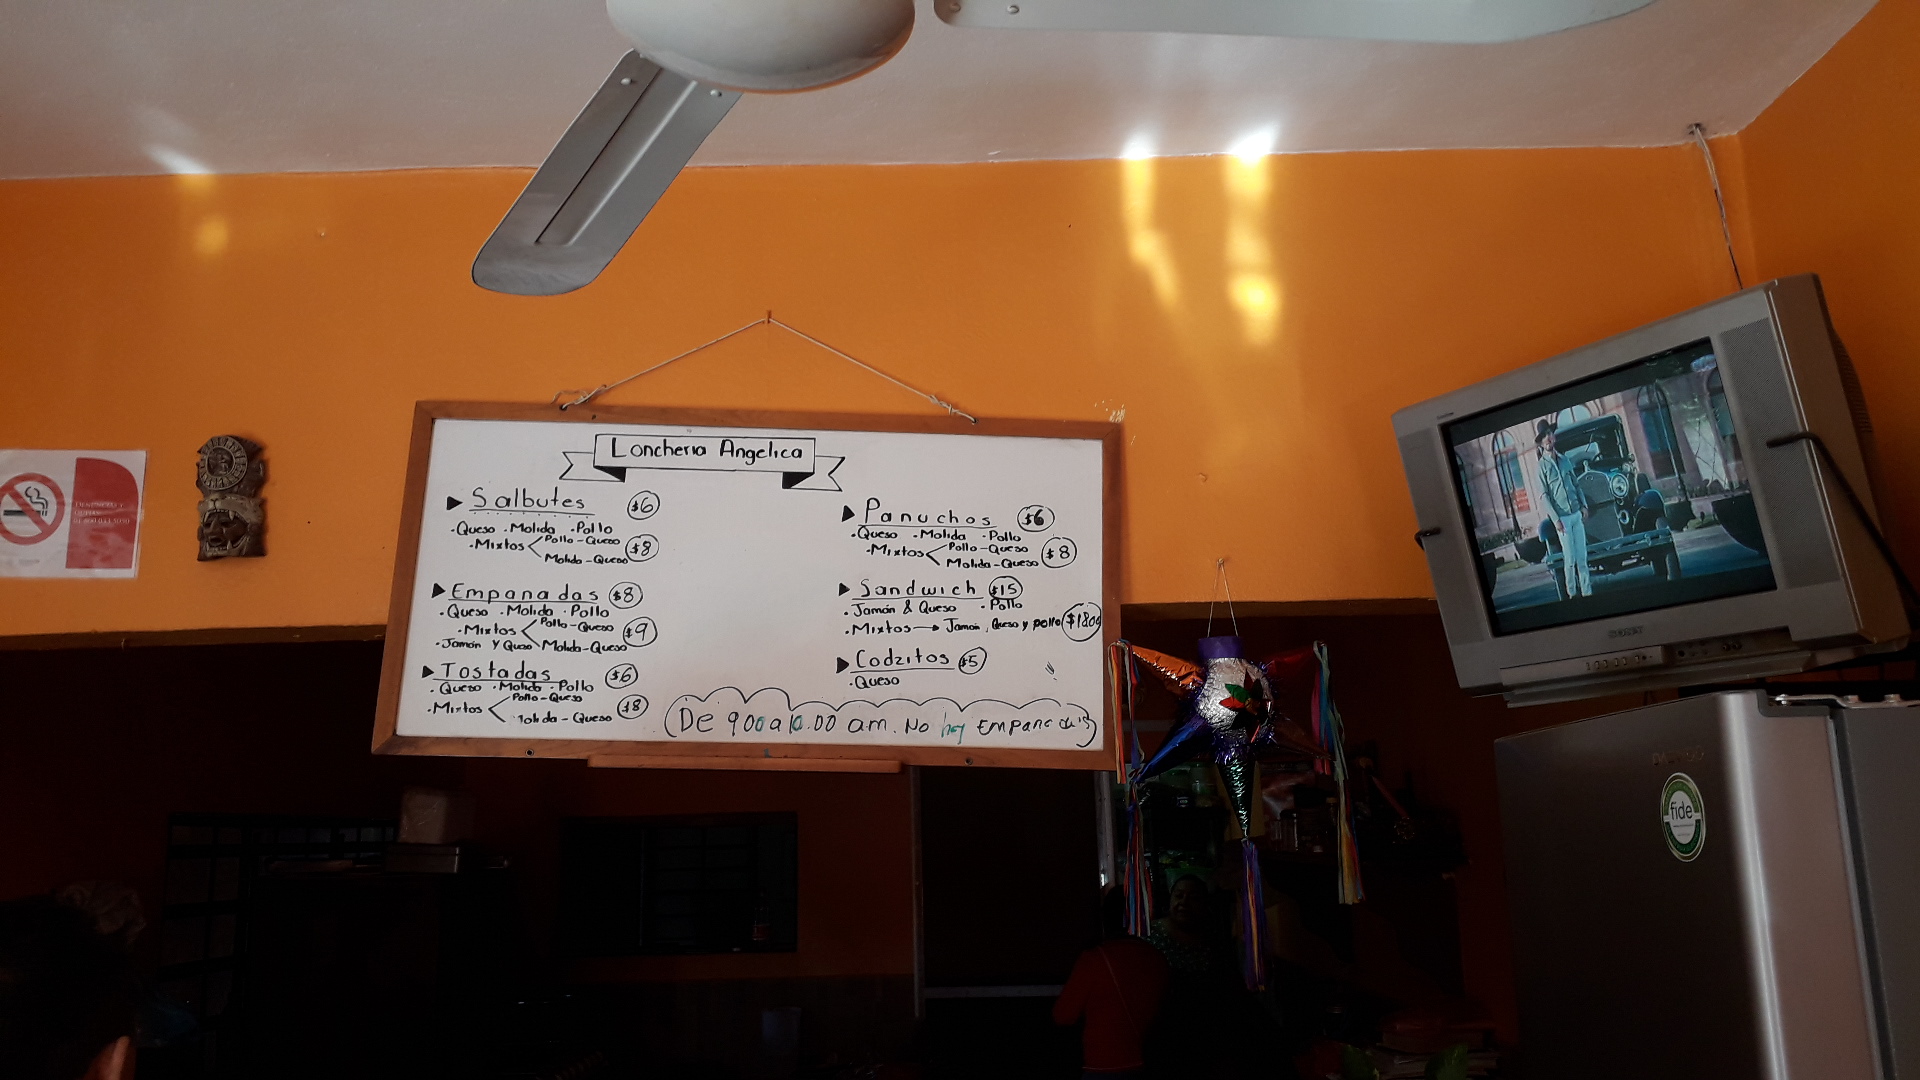 Loncheria Angelica
Salbutes $6
·Queso ·Molida ·Pollo
·Mixtos Pollo-Queso $8
Molida-Queso
Empanadas $8
·Queso ·Molida ·Pollo
·Mixtos Pollo-Queso $9
·Jamón y Queso Molida-Queso
Tostadas $6
·Queso ·Molida ·Pollo
·Mixtos Pollo-Queso $8
Molida-Queso
Panuchos $6
·Queso ·Molida ·Pollo
·Mixtos Pollo-Queso $8
Molida-Queso
Sandwich $15
·Jamón & Queso ·Pollo
·Mixtos → Jamón, Queso y pollo $1800
Codzitos $5
·Queso
(De 900 a 10.00 am. No hay Empanadas)
SONY
fide